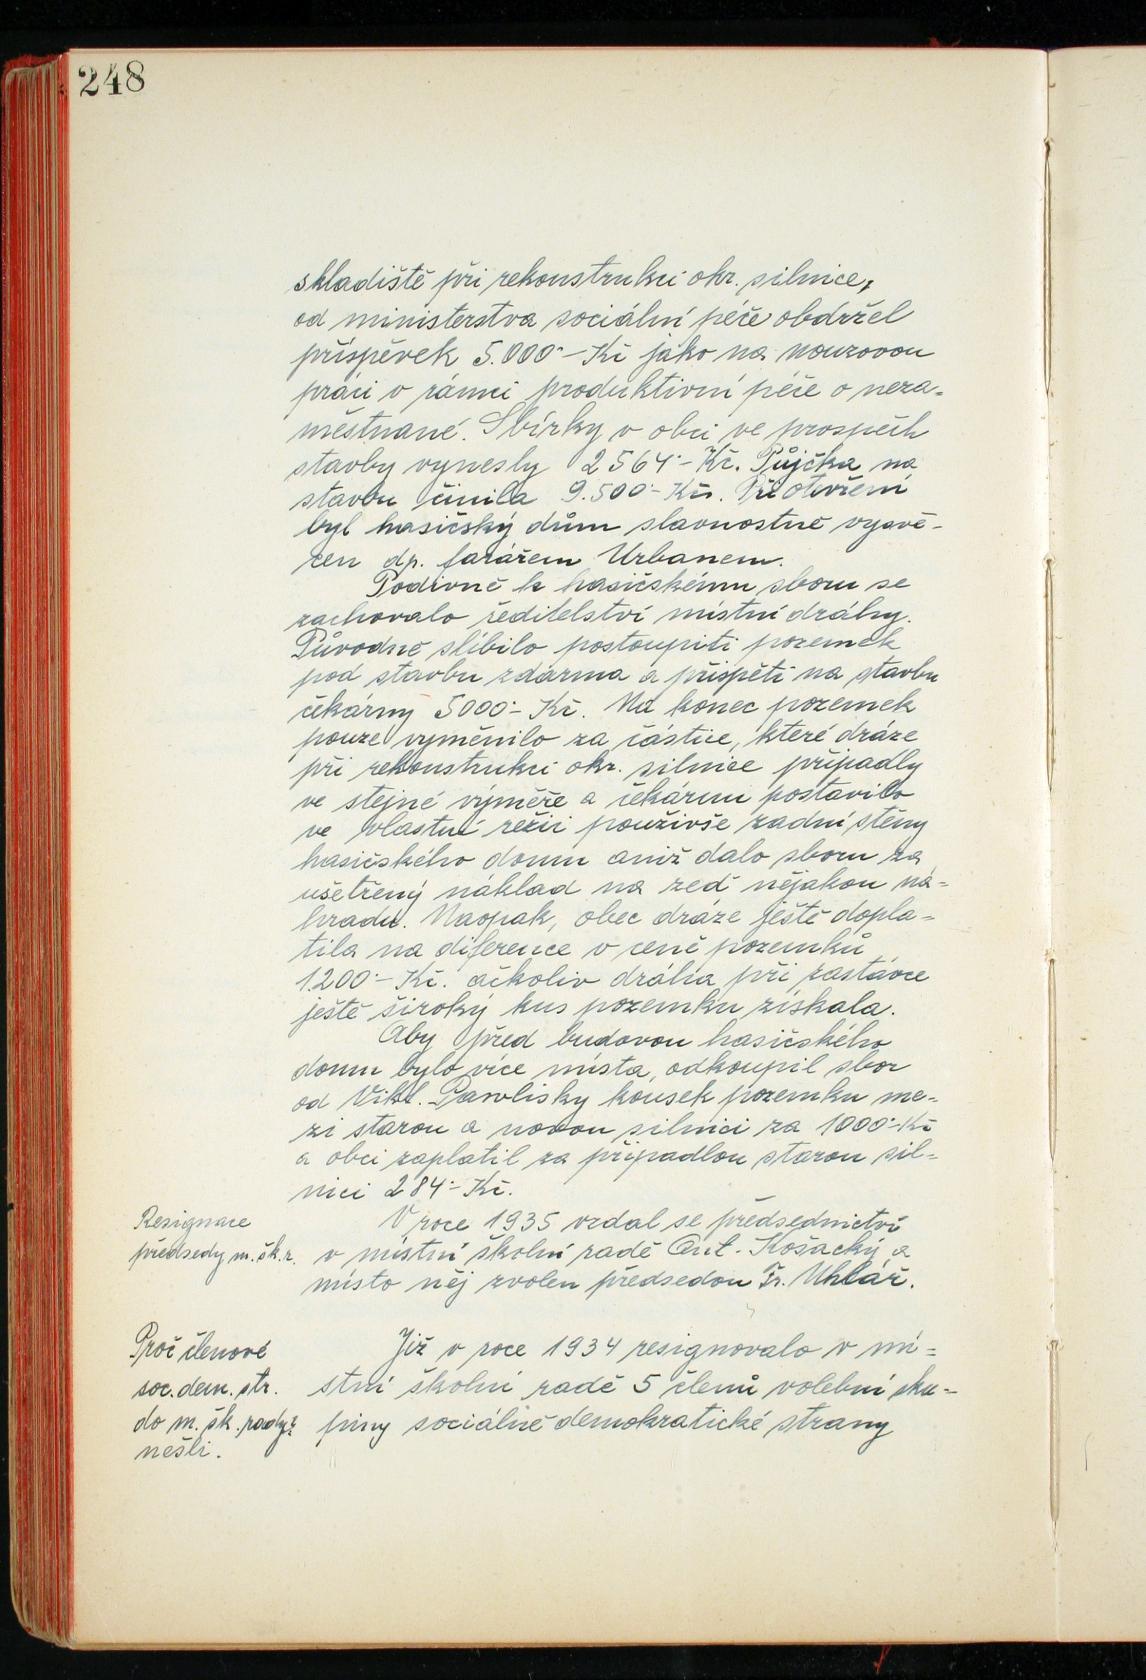 248
skladiště při rekonstrukci okr. silnice,
od ministerstva sociální péče obdržel
příspěvek 5.000·- Kč jako na nouzovou
práci v rámci produktivní péče o neza-
městnané. Sbírky v obci ve prospěch
stavby vynesly 2564·- Kč. Půjčka na
stavbu činila 9.500·- Kč. Při otevření
byl hasičský dům slavnostně vysvě-
cen dp. farářem Urbanem.
Podivně k hasičskému sboru se
zachovalo ředitelství místní dráhy.
Původně slíbilo postoupiti pozemek
pod stavbu zdarma a přispěti na stavbu
čekárny 5000·- Kč. Na konec pozemek
pouze vyměnilo za částice, které dráze
při rekonstrukci okr. silnice připadly
ve stejné výměře a čekárnu postavilo
ve vlastní režii použivše zadní stěny
hasičského domu aniž dalo sboru za
ušetřený náklad na zeď nějakou ná-
hradu. Naopak, obec dráze ještě dopla-
tila na diference v ceně pozemků
1.200·- Kč. ačkoliv dráha při zastávce
ještě široký kus pozemku získala.
Aby před budovou hasičského
domu bylo více místa, odkoupil sbor
od Vikt. Pavlisky kousek pozemku me-
zi starou a novou silnicí za 1000·- Kč
a obci zaplatil za připadlou starou sil-
nici 284·- Kč.
Resignace
předsedy m. šk. r.
V roce 1935 vzdal se předsednictví
v místní školní radě Ant. Košacký a
místo něj zvolen předsedou Fr. Uhlář.
Proč členové
soc. dem. str.
do m. šk. rady
nešli.
Již v roce 1934 resignovalo v mí-
stní školní radě 5 členů volební sku-
piny sociálně demokratické strany